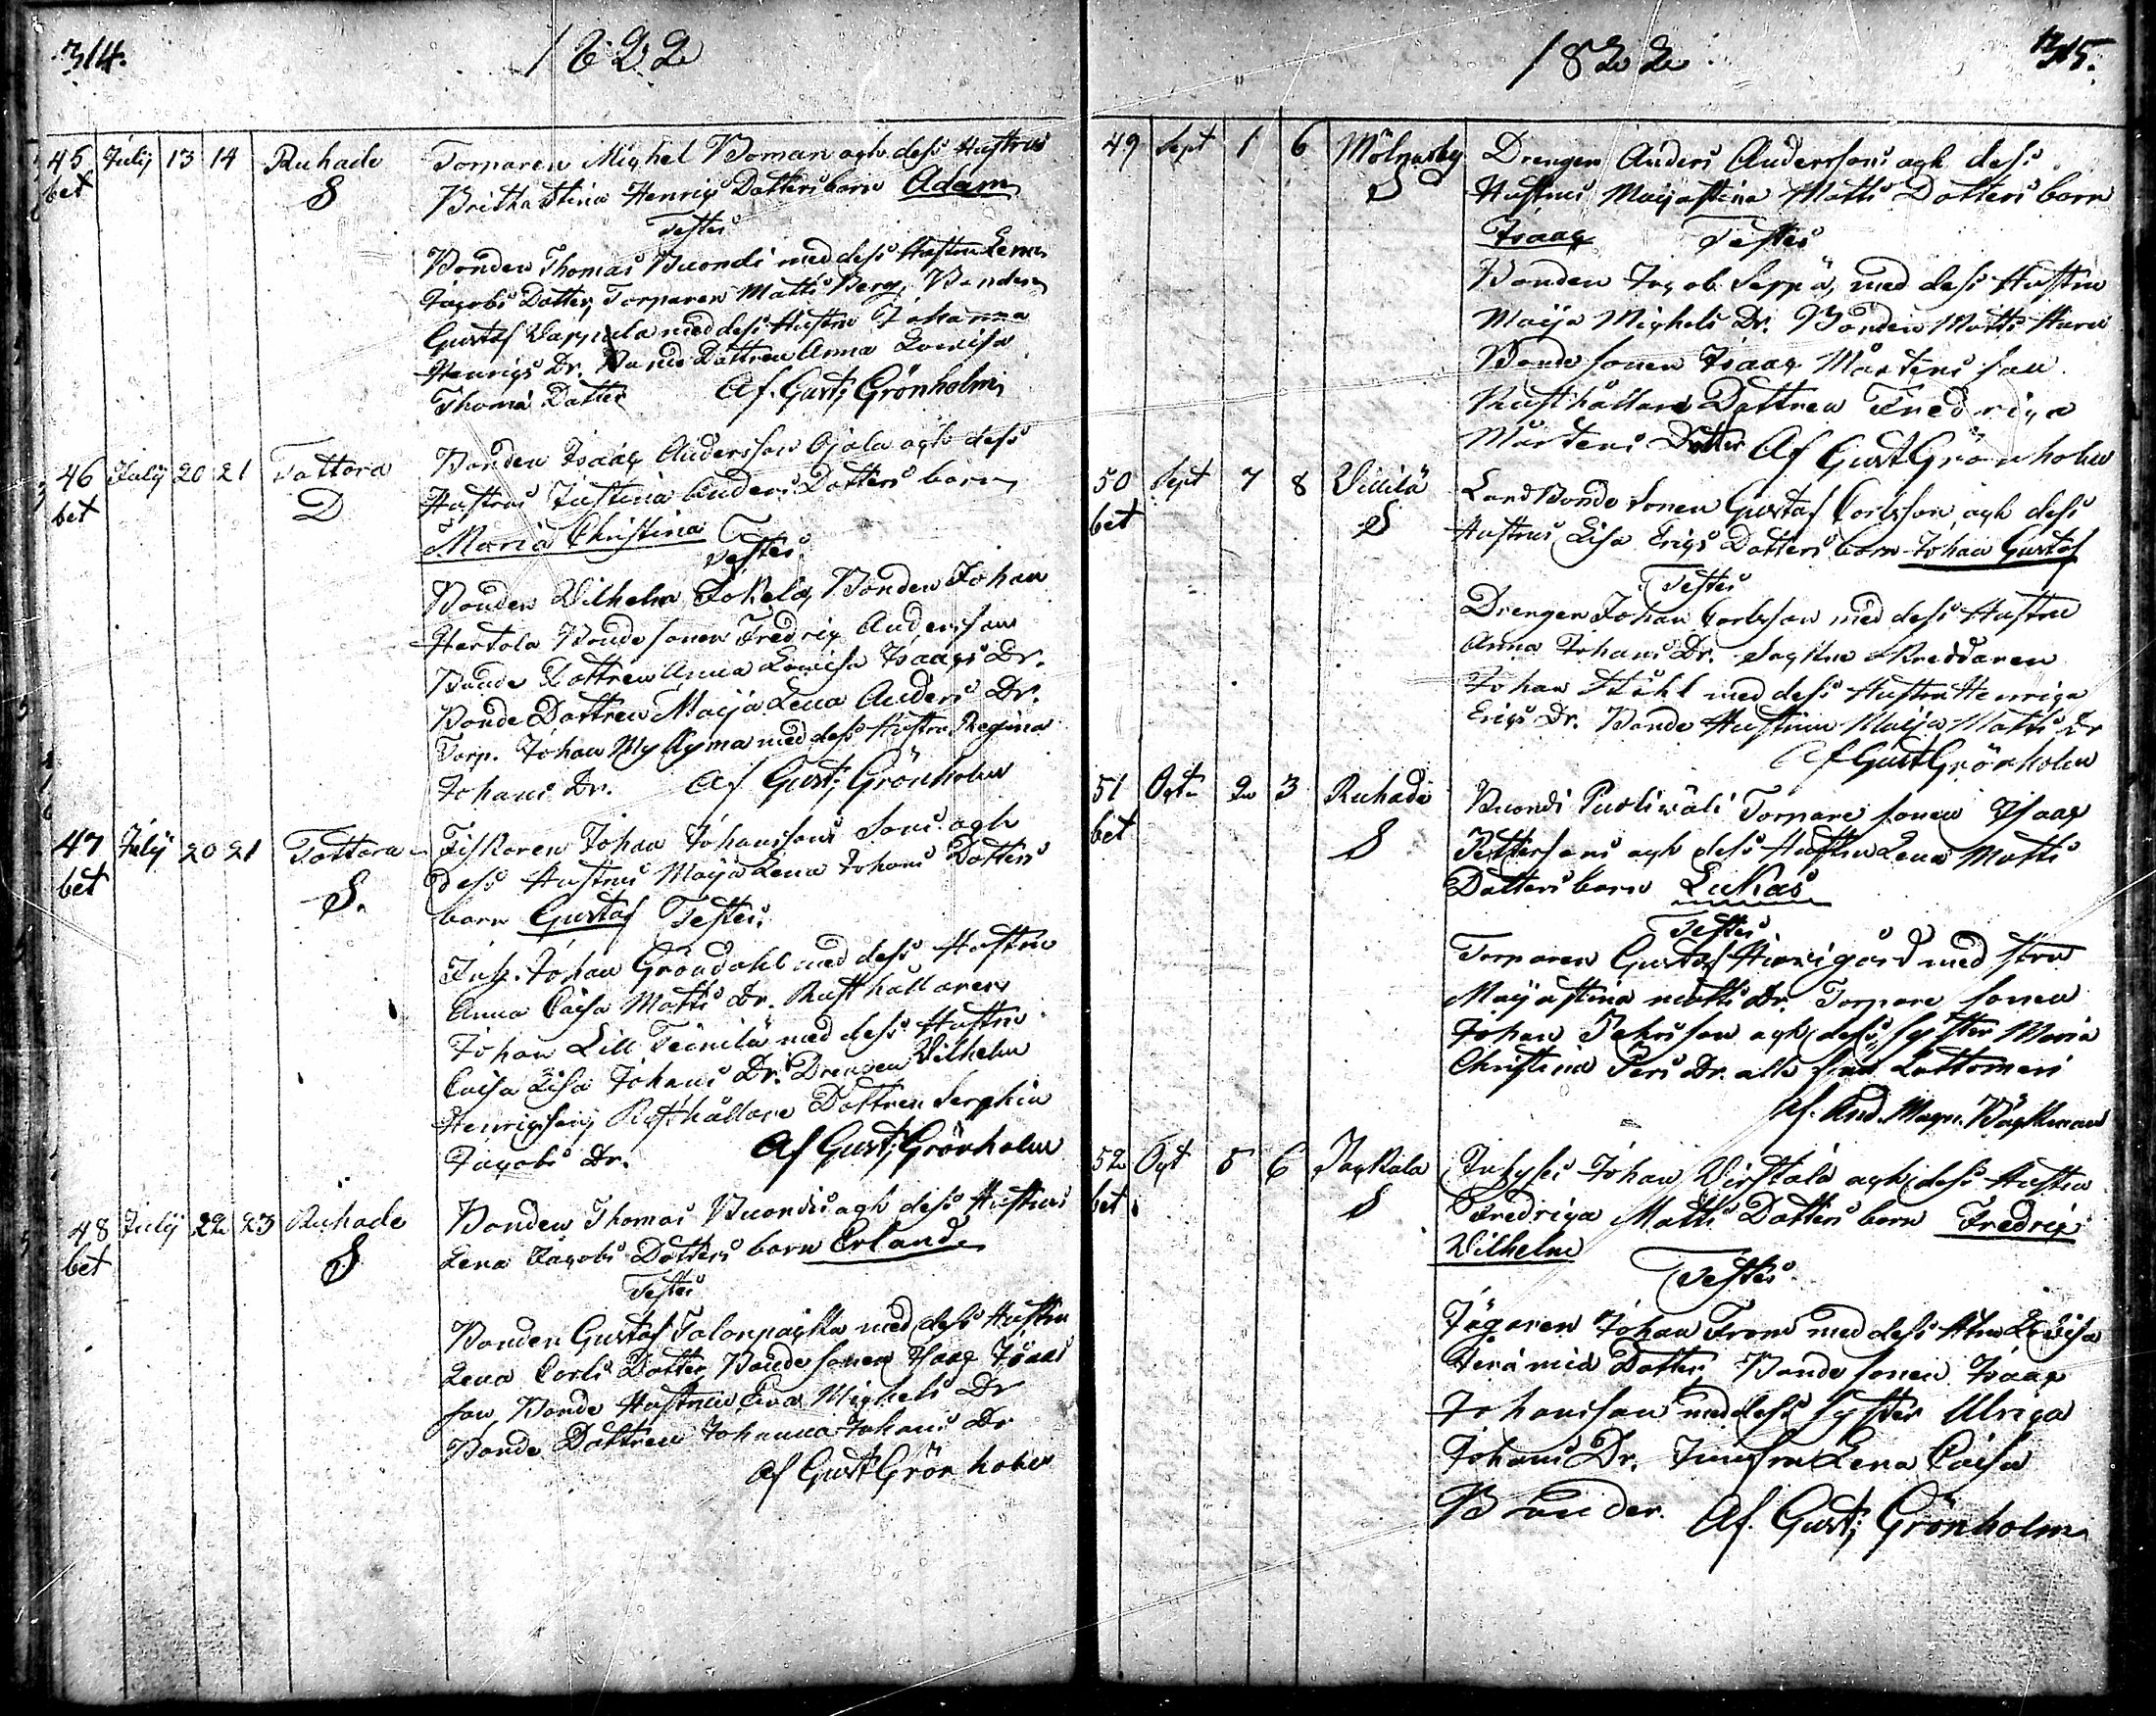 314.
1822
45 July 13 14 Ruhade Torparen Mighel Boman ogh dess Hustrus
bet S Britha Stina Henrigs Dotters barn Adam
Testes
Bonden Thomas Buondi med dess Hustru Lena
Jagobs Dotter, Torparen Matts Berg, Bonden
Gustaf med dess Hustru Johanna
Henrigs Dr. Bonde Dottren Anna Lovisa
Thomä Dotter Af. Gust; Grönholm
46 July 20 21 Tottora Bonden Isaag Andersson Ojala ogh dess
bet D Hustrus Justina Anders Dotters barn
Maria Christina Testes.
Bonden Wilhelm Jokela, Bonden Johan
Hertola Bonde sonen Fredrig Andersson
Bonde Dottren Anna Lovisa Isaags Dr.
Bonde Dottren Maija Lena Anders Dr.
Torp. Johan Myllyma med dess Hustru Regina
Johans Dr. Af Gust; Grönholm
47 July 20 21 Tottora Fiskaren Johan Johanssons Sons ogh
bet S. dess Hustrus Maija Lena Johans Dotters
barn Gustaf Testes.
Inh. Johan Gröndahl med dess Hustru
Anna Caisa Matts Dr. Rusthållaren
Johan Lill Teinilä med dess Hustru
Caisa Lisa Johans Dr. Drengen Wilhelm
Henrigsson Rusthållare Dottren Serphia
Jagobs Dr. Af Gust; Grönholm
48 July 22 23 Ruhade Bonden Thomas Buondis ogh dess Hustrus
bet S Lena Jagobs Dotters barn Erland
Testes
Bonden Gustaf med dess Hustru
Lena Carls Dotter, Bonde sonen Isaag Isaas
son, Bonde Hustrun Eva Mighels Dr
Bonde Dottren Johanna Johans Dr
Af Gust Grönholm
1822
315.
49 Sept 1 6 Mölnarby Drengen Anders Anderssons ogh dess
S Hustrus Maijastina Matts Dotters barn
Isaag Testes
Bonden Jagob Seppä, med dess Hustru
Maija Mighels Dr. Bonden Matts
Bonde sonen Isaag Mårtens son
Rusthållare Dottren Fredriga
Mårtens Dotter Af Gust Grönholm
50 Sept 7 8 Vliilä Land Bonde Sonen Gustaf Carlsson ogh dess
bet S Hustrus Lisa Erigs Dotters barn Johan Gustaf
Testes
Drengen Johan Carlsson med dess Hustru
Anna Johans Dr. Sogkne Skreddaren
Johan Ståhl med dess Hustru Henriga
Erigs Dr. Bonde Hustrun Maija Matts Dr
Af Gust Grönholm
51 Ogt. 2 3 Ruhade Buondi Torpare sonen Isaag
bet S Pettersons ogh dess Hustru Lena Matts
Dotters barn Lukas
Testes
Torparen Gustaf med stru
Maijastina Matts Dr. Torpare sonen
Johan Pehrsson ogh dess syster Maria
Christina Pers Dr. alle från Lattomeri
Af. And. Magn. Bägkman
52 Ogt 5 6 Jagkala Inhyses Johan ogh dess Hustru
bet S Fredriga Matts Dotters barn Fredrig
Wilhelm Testes.
Jägaren Johan From med dess Hru Lovisa
Heramid Dotter, Bonde sonen Isaag
Johansson med dess syster Ulriga
Johans Dr. Jumfru Lena Caisa
Brander. Af. Gust; Grönholm